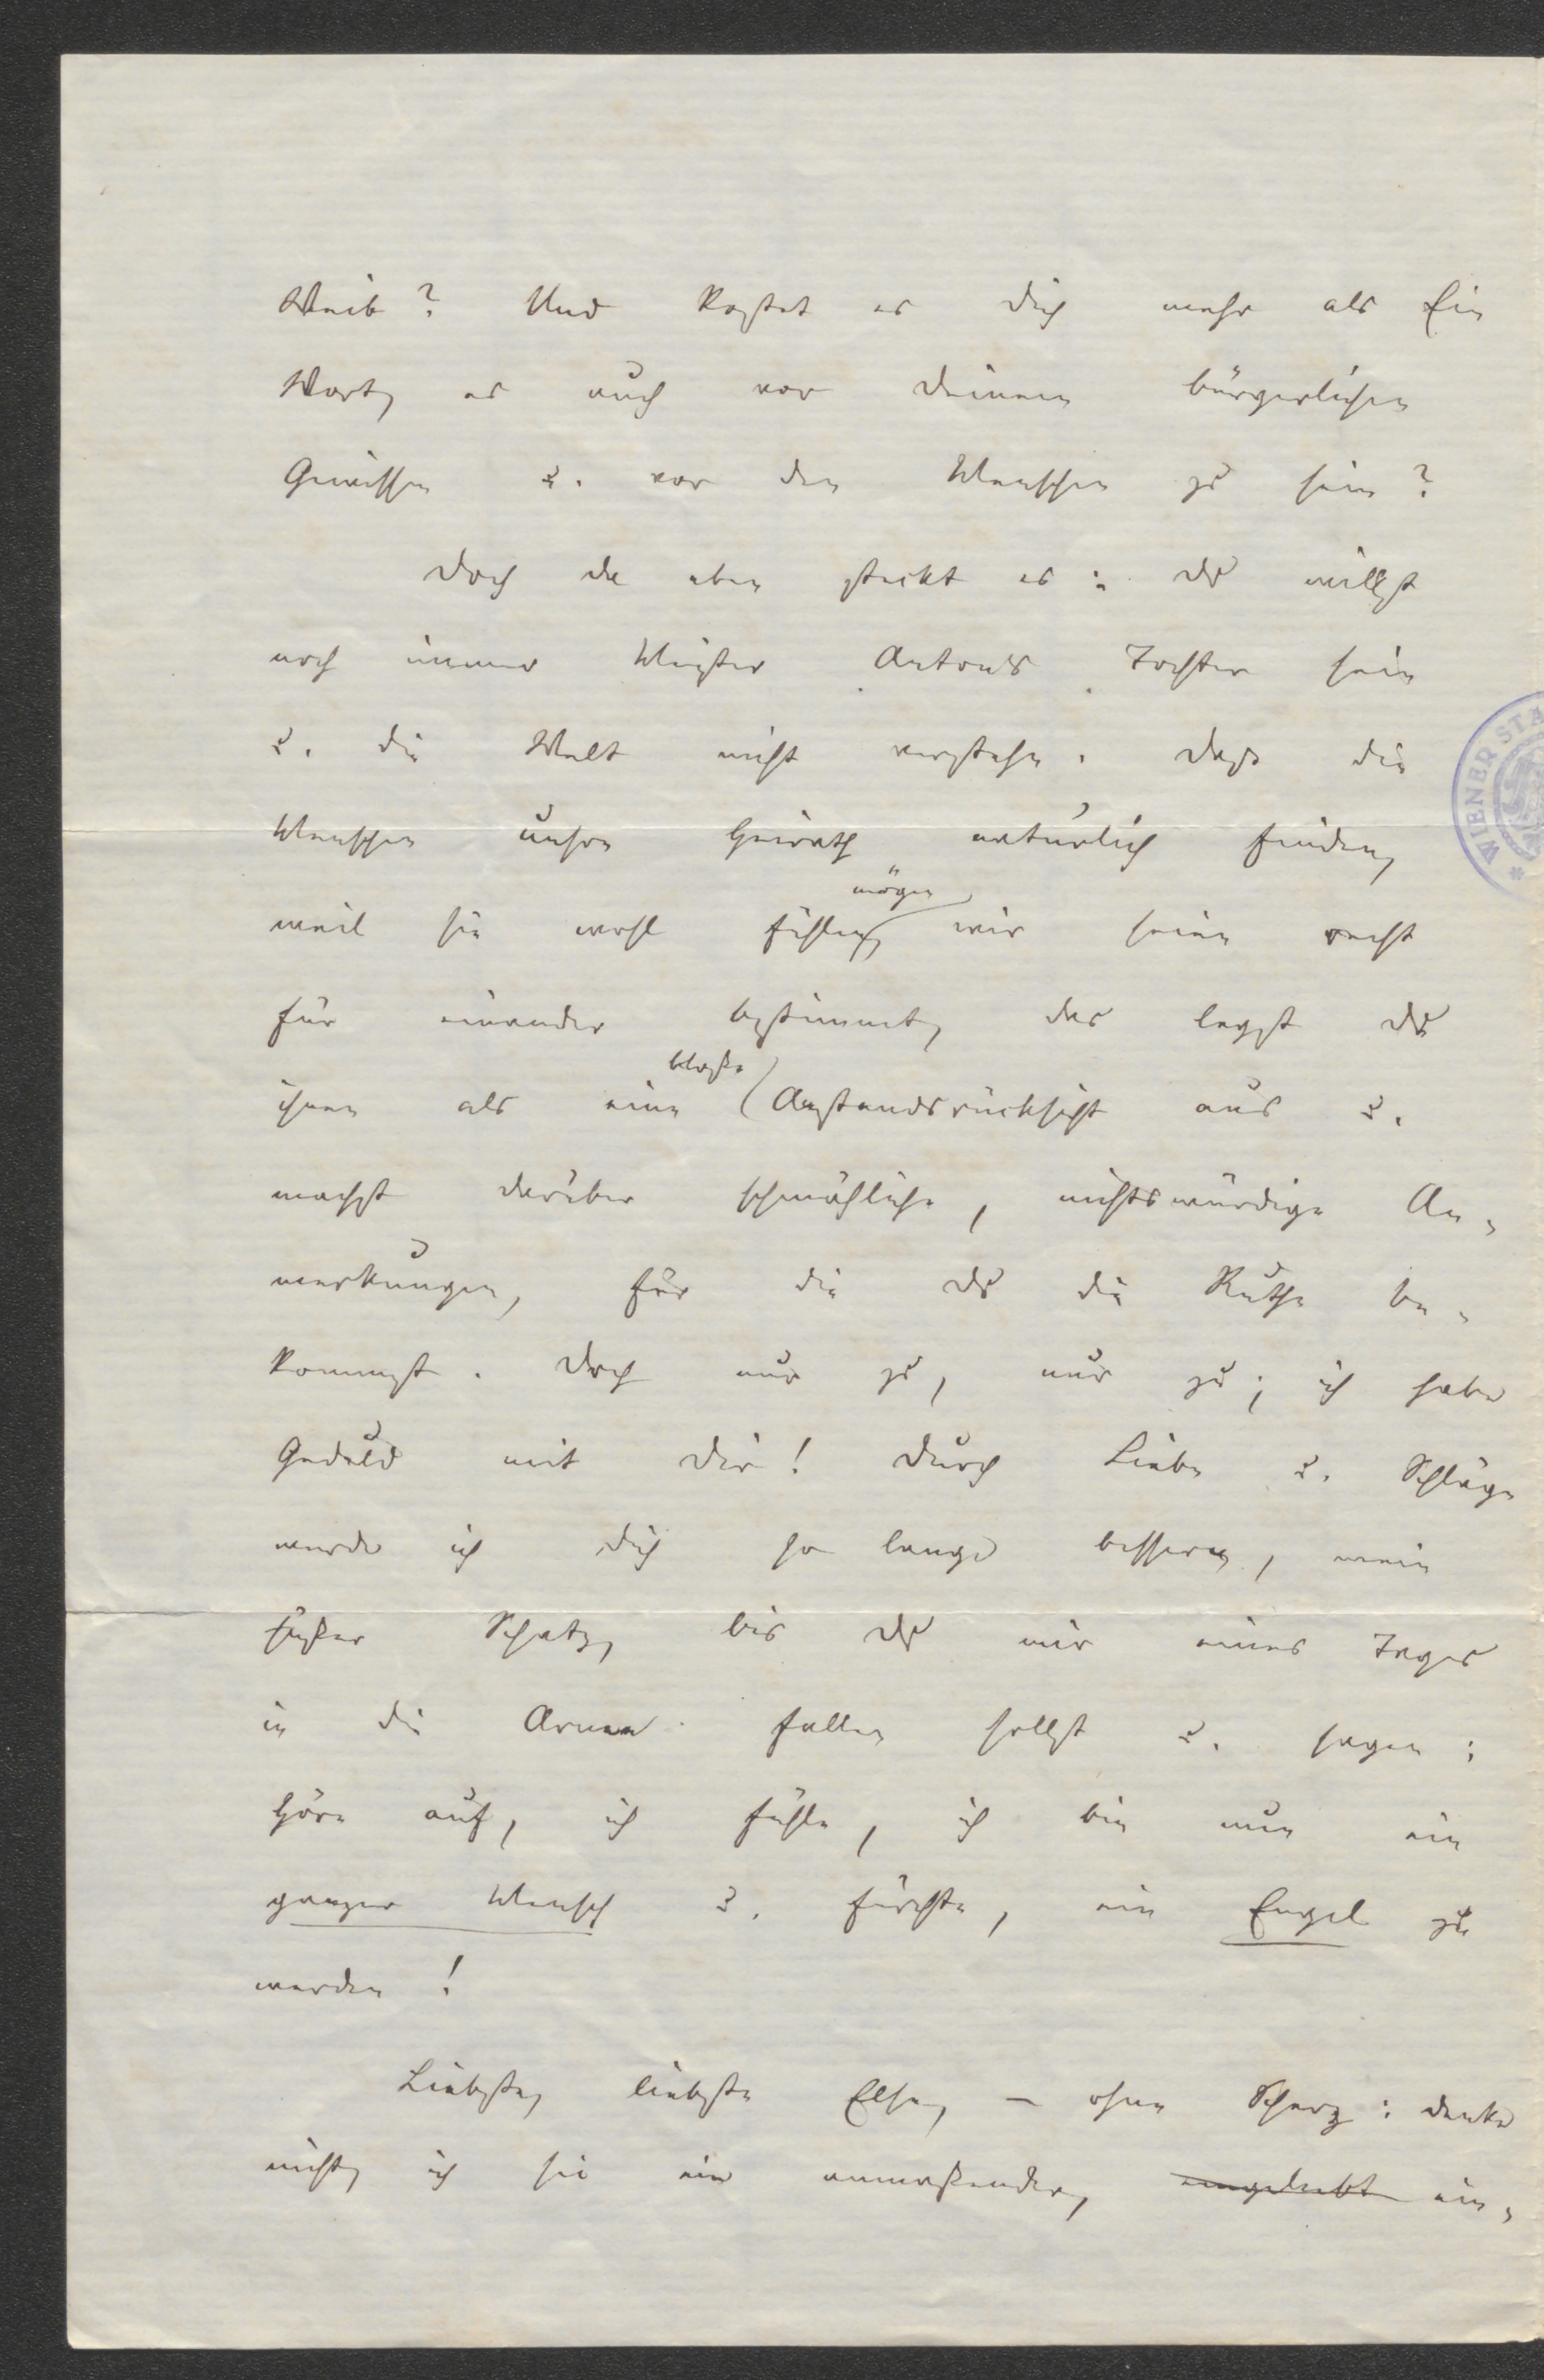 Weib? Und kostet es dich mehr als Ein
Wort, es auch vor deinem bürgerlichen
Gewissen u. vor den Menschen zu sein?
Doch da eben steckt es: du willst
noch immer Meister Antons Tochter sein
u. die Welt nicht verstehn. Dass die
Menschen unsre Heirath natürlich finden,
mögen
weil sie wohl fühlen, wir seien recht
für einander bestimmt, das legst du
bloße
ihnen als eine Anstandsrücksicht aus u.
machst darüber schmähliche, nichtswürdige An-
merkungen, für die du die Ruthe be-
kommst. Doch nur zu, nur zu; ich habe
Geduld mit dir! Durch Liebe u. Schläge
werde ich dich so lange bessern, mein
süßer Schatz, bis du mir eines Tages
in die Arme fallen sollst u. sagen:
höre auf, ich fühle, ich bin nun ein
ganzer Mensch u. fürchte, ein Engel zu
werden!
Liebste, liebste Else, – ohne Scherz: denke
nicht, ich sei ein anmaßender, ein-
WIENER STA